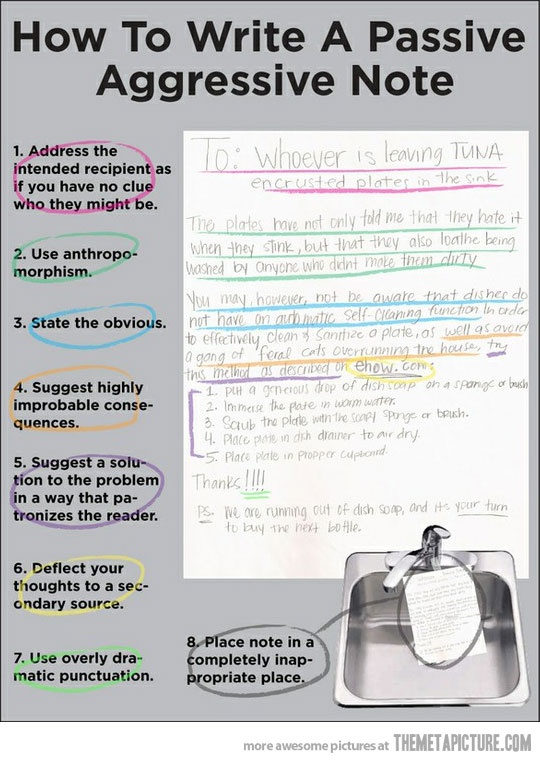 How To Write A Passive
Aggressive Note
1. Address the
intended recipient as
if you have no clue
who they might be.
2. Use anthropo-
morphism.
3. State the obvious.
4. Suggest highly
improbable conse-
quences.
5. Suggest a solu-
tion to the problem
in a way that pa-
tronizes the reader.
6. Deflect your
thoughts to a sec-
ondary source.
7. Use overly dra-
matic punctuation.
To: Whoever is leaving TUNA
encrusted plates in the sink
The plates have not only told me that they hate it
when they stink, but that they also loathe being
washed by anyone who didnt make them dirty
You may, however, not be aware that dishes do
not have an automatic self-cleaning function. In order
to effectively clean & sanitize a plate, as well as avoid
a gang of feral cats overrunning the house, try
this method as described on ehow.com:
1. Put a generous drop of dish soap on a sponge or brush
2. Immerse the plate in warm water.
3. Scrub the plate with the soapy sponge or brush.
4. Place plate in dish drainer to air dry.
5. Place plate in propper cupboard.
Thanks!!!!
PS. We are running out of dish soap, and its your turn
to buy the next bottle.
8. Place note in a
completely inap-
propriate place.
more awesome pictures at THEMETAPICTURE.COM